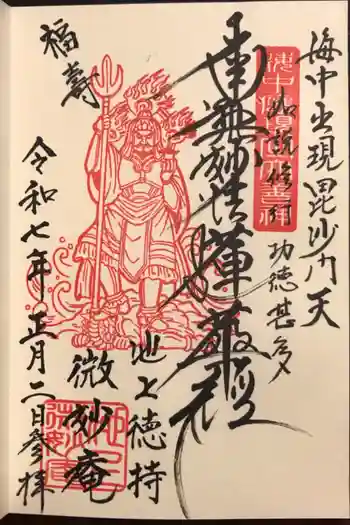 海中出現毘沙門天
如説修行
功徳甚多
南無妙法蓮華経
池上徳持
微妙庵
福寿
令和七年正月二日参拝